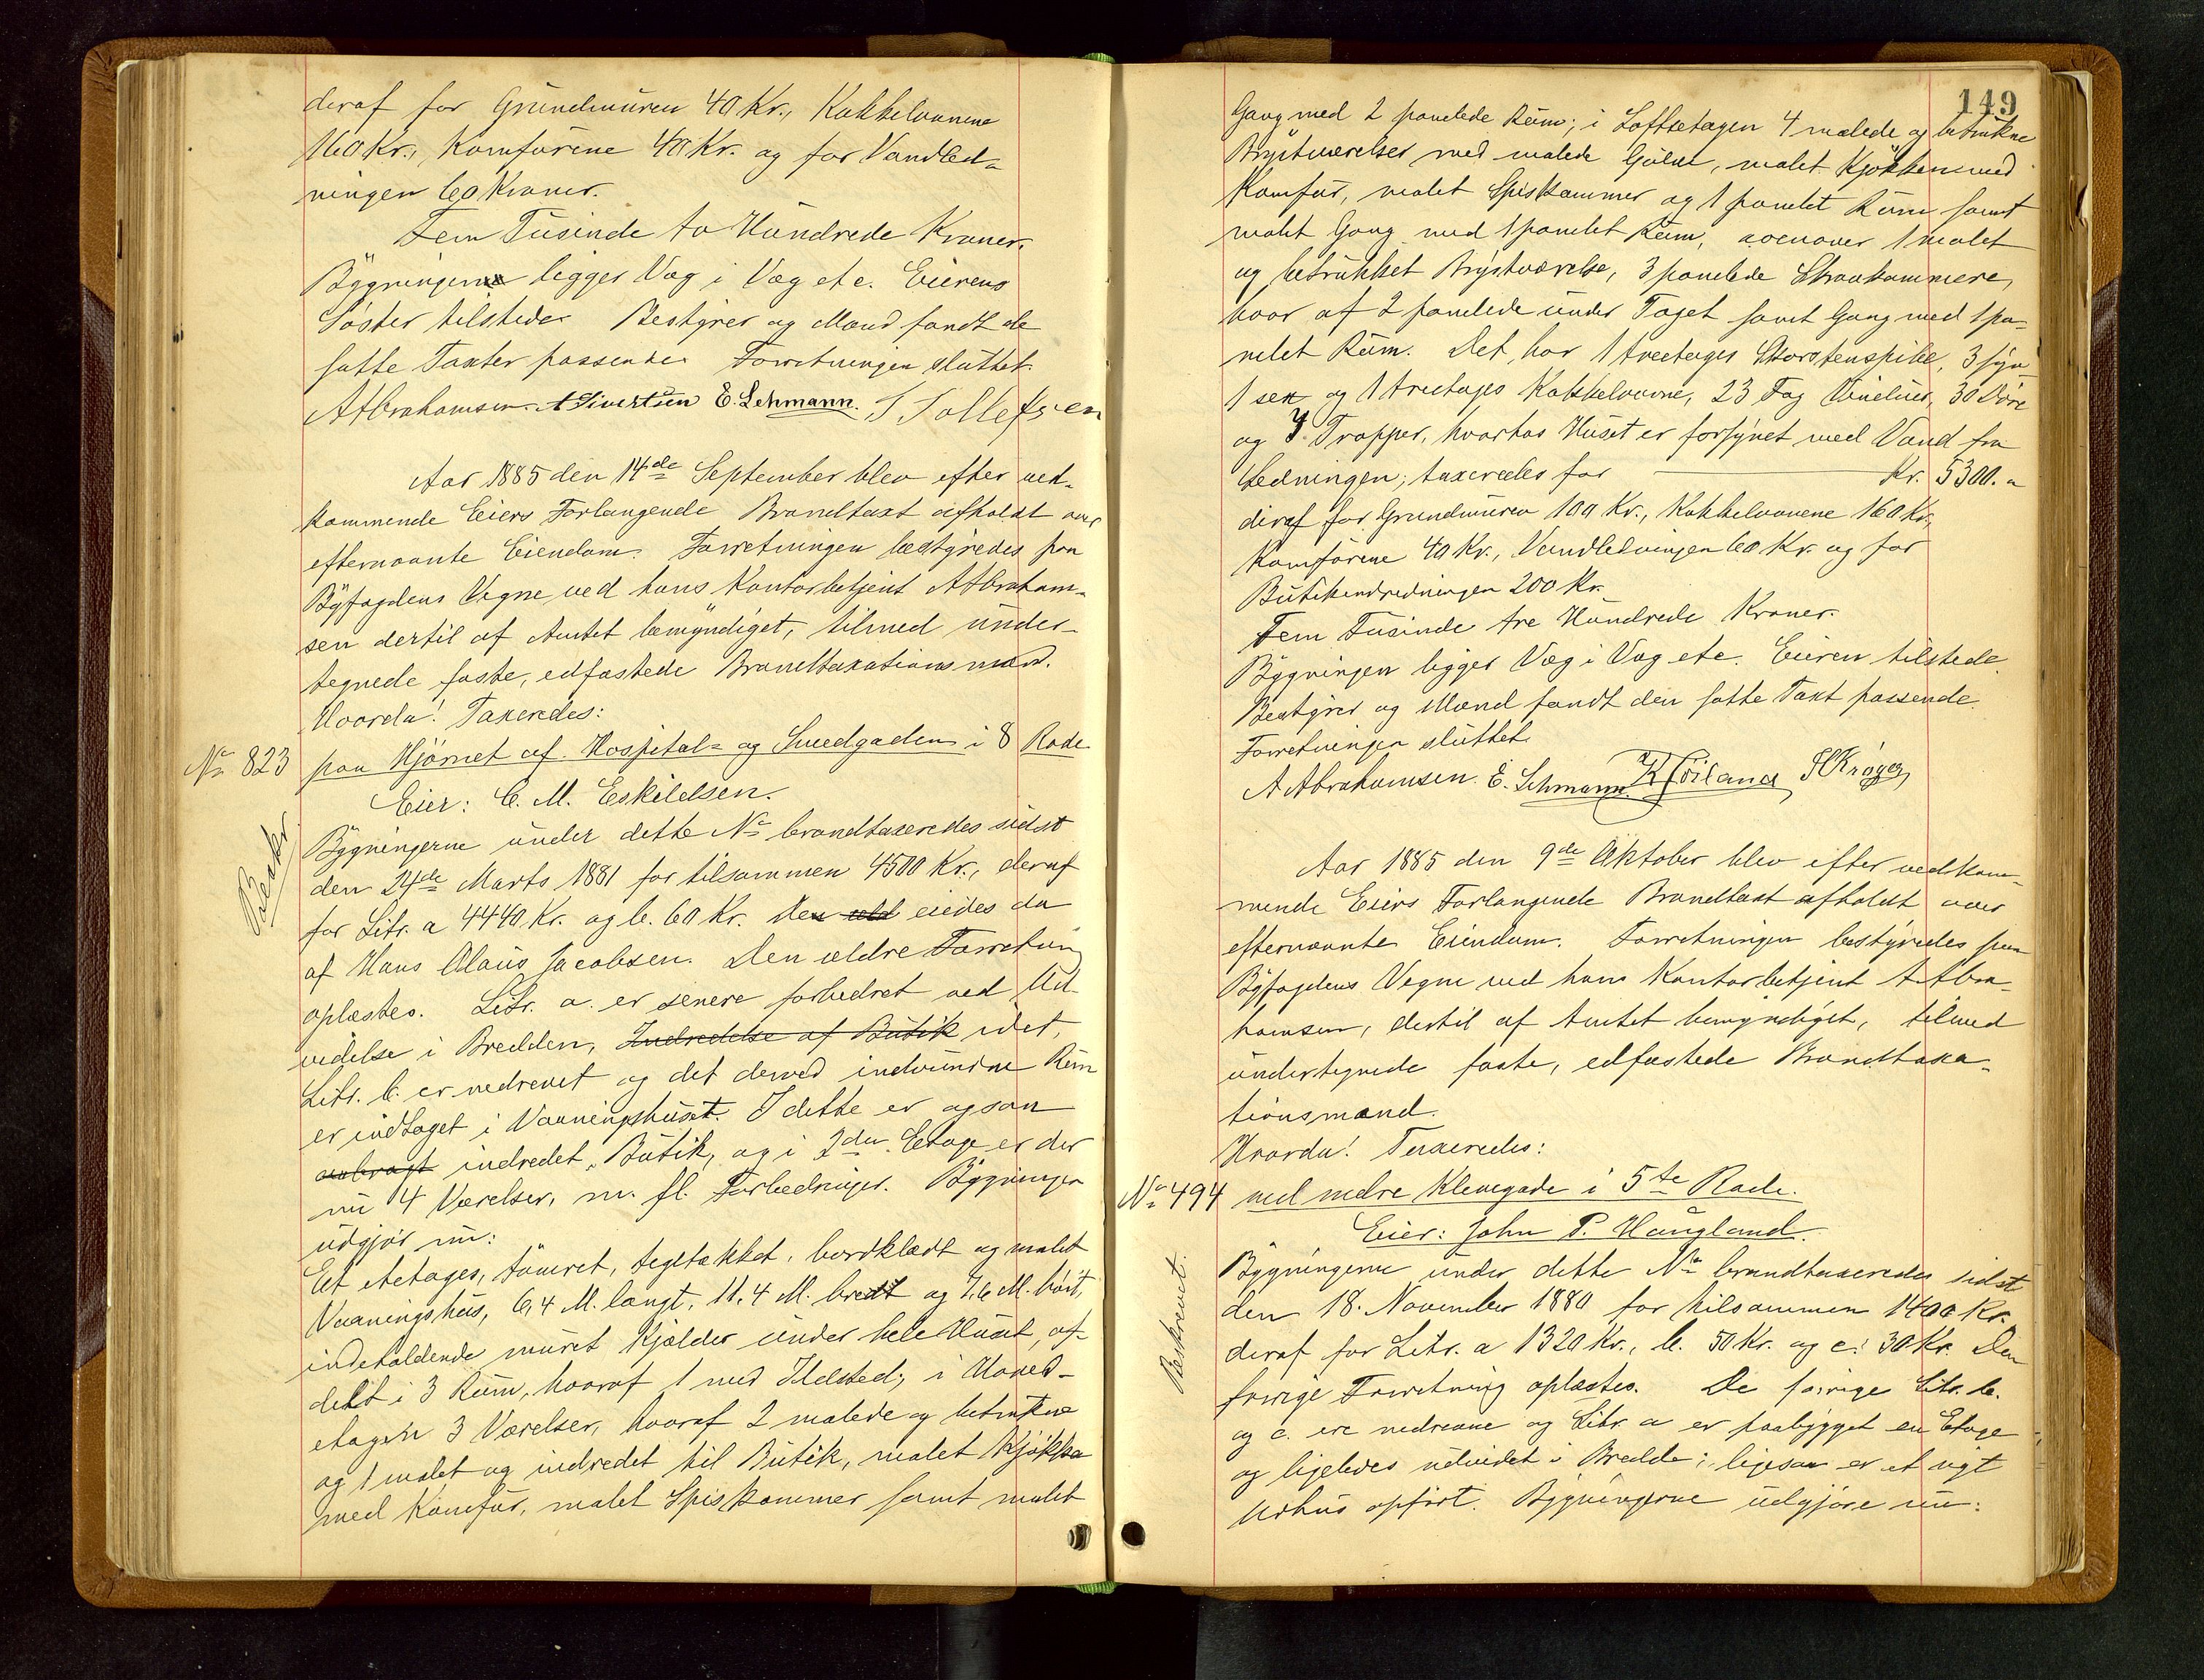 deraf for Grundmuren 40 Kr., Kakkelovnene
160 Kr., Komfurene 40 Kr. og for Vandled-
ningen 60 Kroner.
Fem Tusinde to Hundrede Kroner.
Bygningen ligger Væg i Væg etc. Eierens
Söster tilstede. Bestyrer og Mænd fandt de
satte Taxter passende. Forretningen sluttet.
A Abrahamsen. A Sivertsen E. Lehmann. T Tollefsen
Aar 1885 den 14de September blev efter ved-
kommende Eiers Forlangende Brandtaxt afholdt over
efternævnte Eiendom. Forretningen bestyredes paa
Byfogdens Vegne ved hans Kontorbetjent A Abraham-
sen dertil af Amtet bemyndiget, tilmed under-
tegnede faste, edfæstede Brandtaxationsmænd.
Hvorda! Taxeredes:
No 823 paa Hjörnet af Hospitals og Smedgaden i 8 Rode
Eier: C. M. Eskildsen.
Beskr.
Bygningerne under dette No brandtaxeredes sidst
den 24de Marts 1881 for tilsammen 4500 Kr., deraf
for Litr. a 4440 Kr. og b. 60 Kr. De eiedes da
af Hans Olaus Jacobsen. Den ældre Forretning
oplæstes. Litr. a. er senere forbedret ved Ud-
videlse i Bredden, Indredelse af Butik idet,
Litr. b. er nedrevet og det derved indvundne Rum
er indtaget i Vaaningshuset. I dette er ogsaa
anbragt indredet Butik, og i 2den Etage er der
nu 4 Værelser, m. fl. Forbedringer. Bygningen
udgjör nu:
Et etetages, tömret, tegltækket, bordklædt og malet
Vaaningshus, 6,4 M. langt, 11,4 M. bredt og 7,6 M. höit,
indeholdende muret Kjælder under hele Huset, af-
delt i 3 Rum, hvoraf 1 med Ildsted; i Hoved-
etagen 3 Værelser, hvoraf 2 malede og betrukne
og 1 malet og indredet til Butik, malet Kjökken
med Komfur, malet Spiskammer samt malet
149
Gang med 2 panelede Rum; i Loftsetagen 4 malede og betrukne
Brystværelser med malede Gulve, malet Kjökken med
Komfur, malet Spiskammer og 1 panelet Rum samt
malet Gang med 1 panelet Rum, ovenover 1 malet
og betrukket Brystværelse, 3 panelede Skraakammere,
hvor af 2 panelede under Taget samt Gang med 1 pa-
nelet Rum. Det har 1 treetages Skorstenspibe, 3 fyr
1 sex og 1 treetages Kakkelovne, 23 Fag Vinduer, 30 Döre
og 3 Trapper, hvorhos Huset er forsynet med Vand fra
Ledningen; taxeredes for Kr. 5300.
deraf for Grundmuren 100 Kr., Kakkelovnene 160 Kr.,
Komfurene 40 Kr., Vandledningen 60 Kr. og for
Butikindredningen 200 Kr.
Fem Tusinde tre Hundrede Kroner.
Bygningen ligger Væg i Væg etc. Eieren tilstede.
Bestyrer og Mænd fandt den satte Taxt passende.
Forretningen sluttet.
A Abrahamsen. E. Lehmann. K Höiland S Kröger
Aar 1885 den 9de Oktober blev efter vedkom-
mende Eiers Forlangende Brandtaxt afholdt over
efternævnte Eiendom. Forretningen bestyredes paa
Byfogdens Vegne ved hans Kontorbetjent A Abra-
hamsen, dertil af Amtet bemyndiget, tilmed
undertegnede faste, edfæstede Brandtaxa-
tionsmænd.
Hvorda! Taxeredes:
No 494 ved nedre Klevegade i 5te Rode.
Eier: John P. Haugland.
Beskrevet.
Bygningerne under dette No brandtaxeredes sidst
den 18. November 1880 for tilsammen 1400 Kr.
deraf for Litr. a 1320 Kr., b. 50 Kr. og c. 30 Kr. Den
forrige Forretning oplæstes. De forrige Litr. b.
og c. ere nedrevne og Litr. a er paabygget en Etage
og ligeledes udvidet i Bredde; ligesaa er et nyt
Udhus opfört. Bygningerne udgjöre nu: